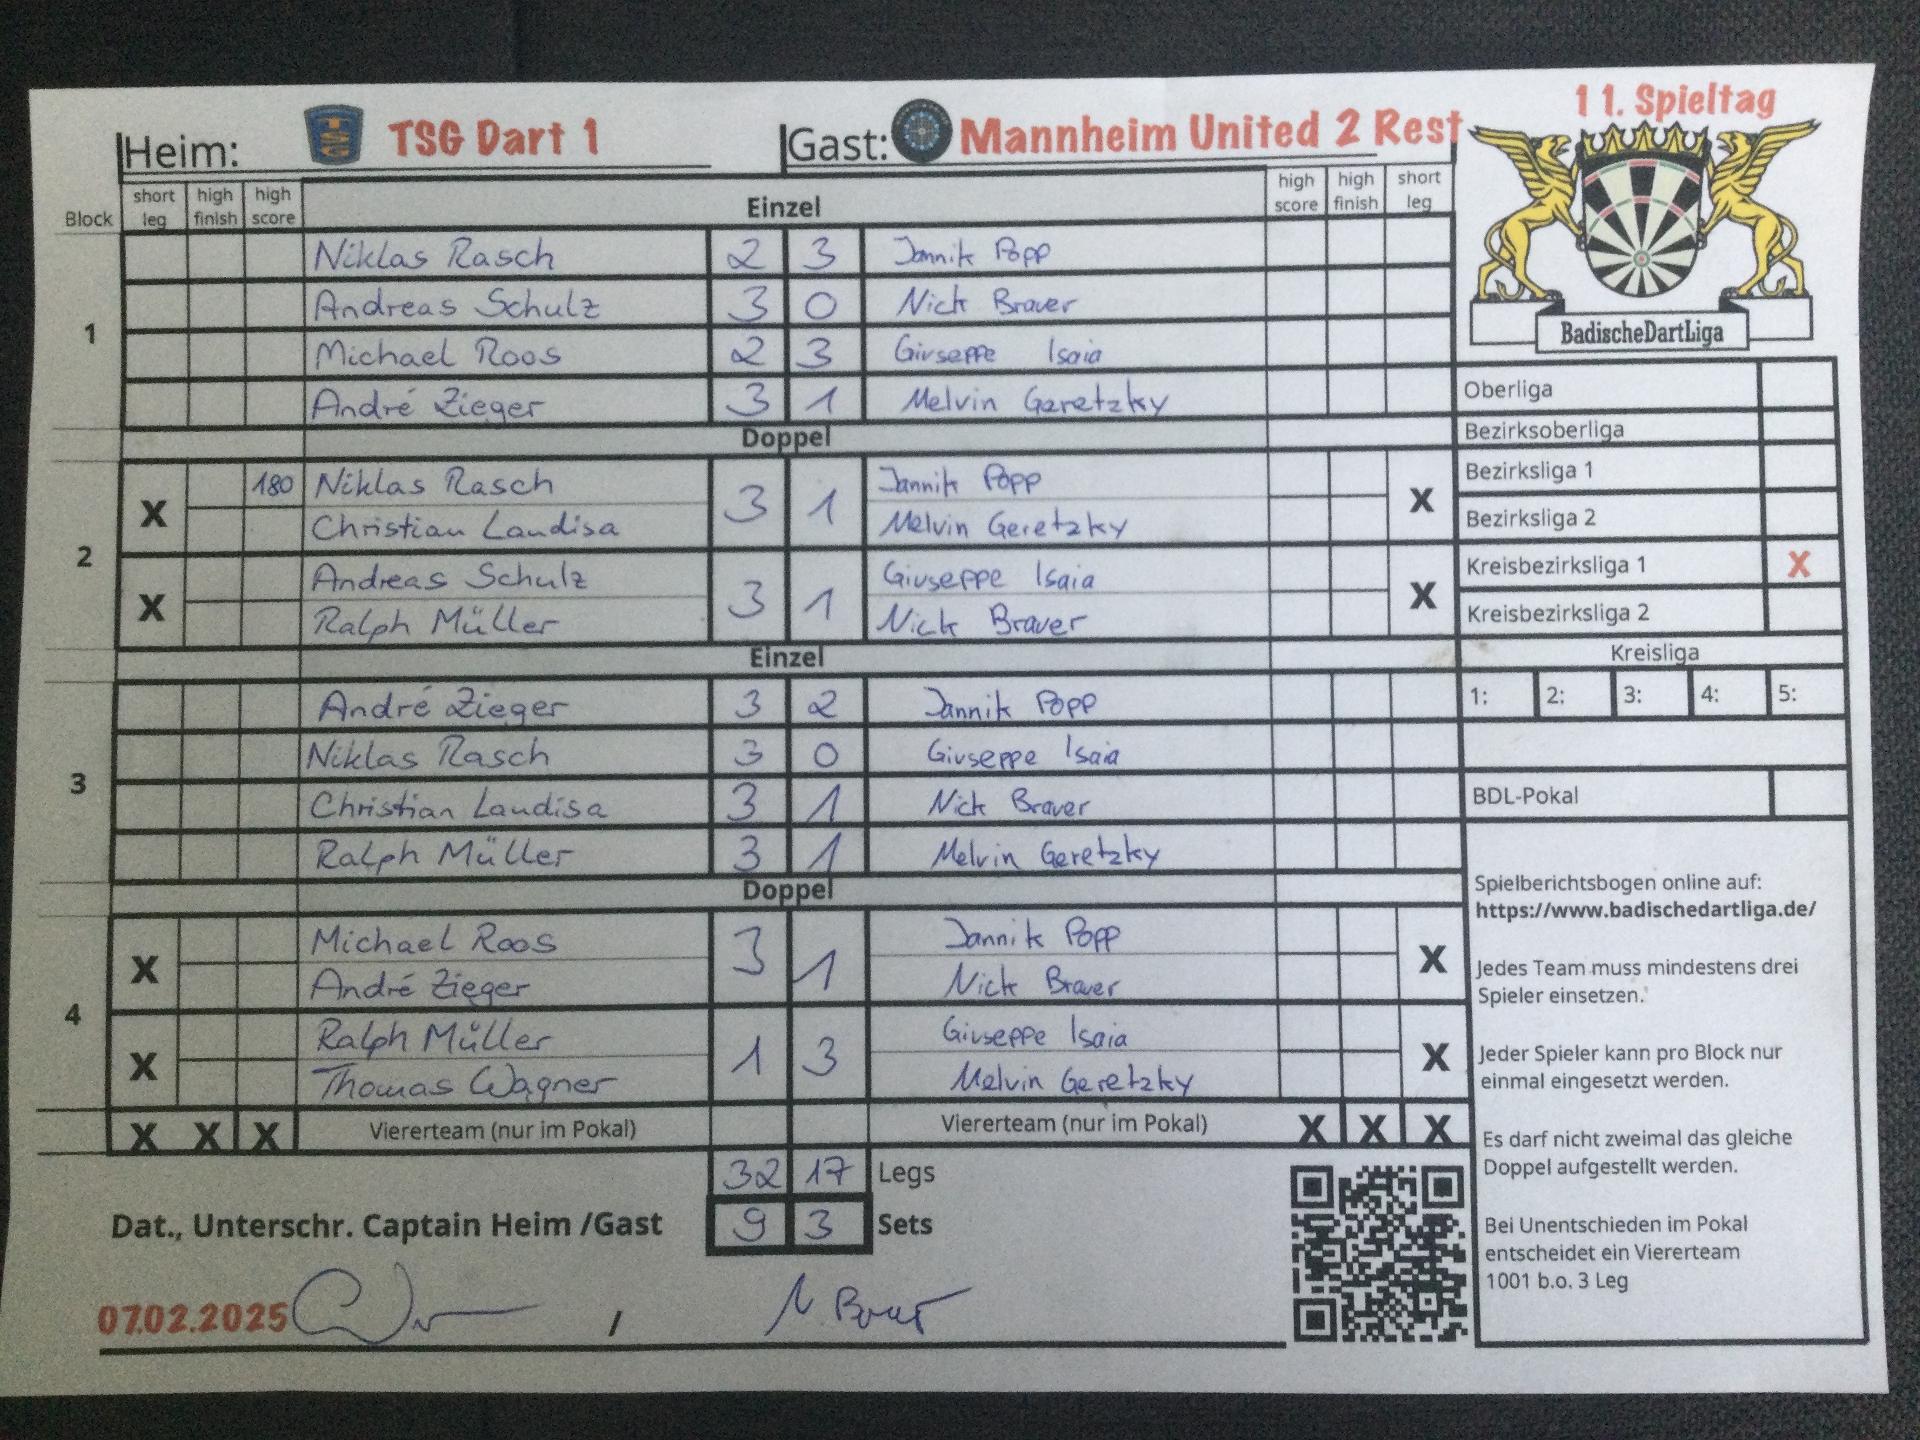 11. Spieltag
Heim: TSG Dart 1 Gast: Mannheim United 2 Rest
Block short leg high finish high score Einzel high score high finish short leg
1
Niklas Rasch 2 3 Jannik Popp
Andreas Schulz 3 0 Nick Brauer
Michael Roos 2 3 Giuseppe Isaia
André Zieger 3 1 Melvin Geretzky
Doppel
2
X 180 Niklas Rasch 3 1 Jannik Popp X
Christian Laudisa Melvin Geretzky
X Andreas Schulz 3 1 Giuseppe Isaia X
Ralph Müller Nick Brauer
Einzel
3
André Zieger 3 2 Jannik Popp
Niklas Rasch 3 0 Giuseppe Isaia
Christian Laudisa 3 1 Nick Brauer
Ralph Müller 3 1 Melvin Geretzky
Doppel
4
X Michael Roos 3 1 Jannik Popp X
André Zieger Nick Brauer
X Ralph Müller 1 3 Giuseppe Isaia X
Thomas Wagner Melvin Geretzky
X X X Viererteam (nur im Pokal) Viererteam (nur im Pokal) X X X
32 17 Legs
Dat., Unterschr. Captain Heim /Gast 9 3 Sets
07.02.2025 /
BadischeDartLiga
Oberliga
Bezirksoberliga
Bezirksliga 1
Bezirksliga 2
Kreisbezirksliga 1 X
Kreisbezirksliga 2
Kreisliga
1: 2: 3: 4: 5:
BDL-Pokal
Spielberichtsbogen online auf:
https://www.badischedartliga.de/
Jedes Team muss mindestens drei
Spieler einsetzen.
Jeder Spieler kann pro Block nur
einmal eingesetzt werden.
Es darf nicht zweimal das gleiche
Doppel aufgestellt werden.
Bei Unentschieden im Pokal
entscheidet ein Viererteam
1001 b.o. 3 Leg